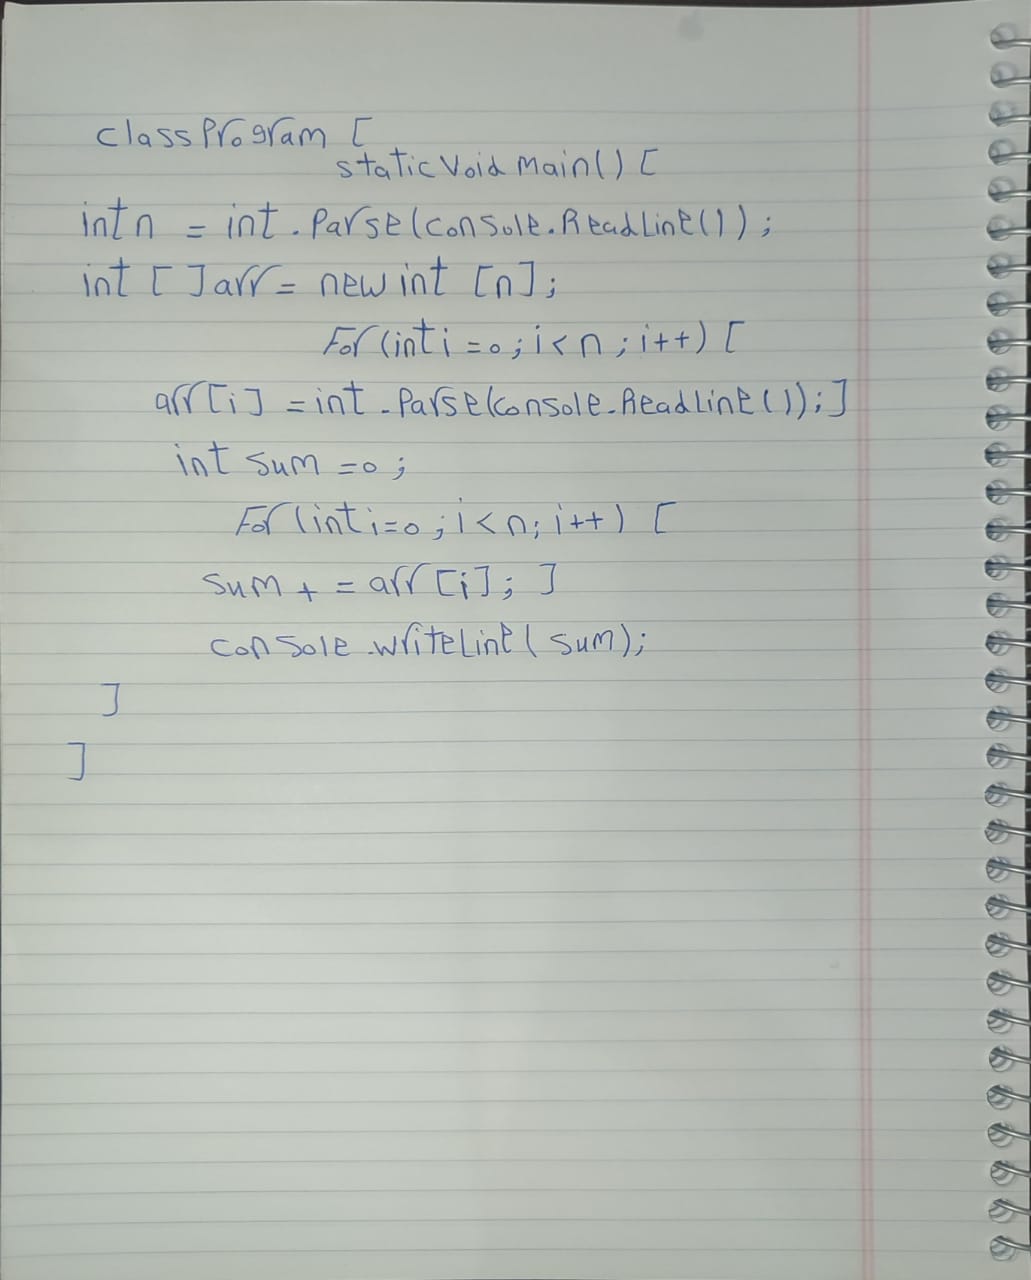 class Program [
static Void main() [
int n = int . Parse(console.ReadLine());
int [ ] arr = new int [n];
For (int i = 0 ; i < n ; i++) [
arr [i] = int . Parse(console.ReadLine()); ]
int sum = 0 ;
For (int i = 0 ; i < n; i++) [
sum + = arr [i]; ]
console.writeLine( sum);
]
]